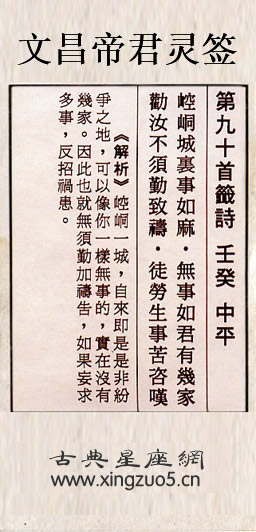 文昌帝君灵签
第九十首籤詩 壬癸 中平
崆峒城裏事如麻·無事如君有幾家
勸汝不須勤致禱·徒勞生事苦咨嘆
《解析》崆峒一城，自來即是是非紛
爭之地，可以像你一樣無事的，實在沒有
幾家。因此也就無須勤加禱告，如果妄求
多事，反招禍患。
古典星座網
www.xingzuo5.cn